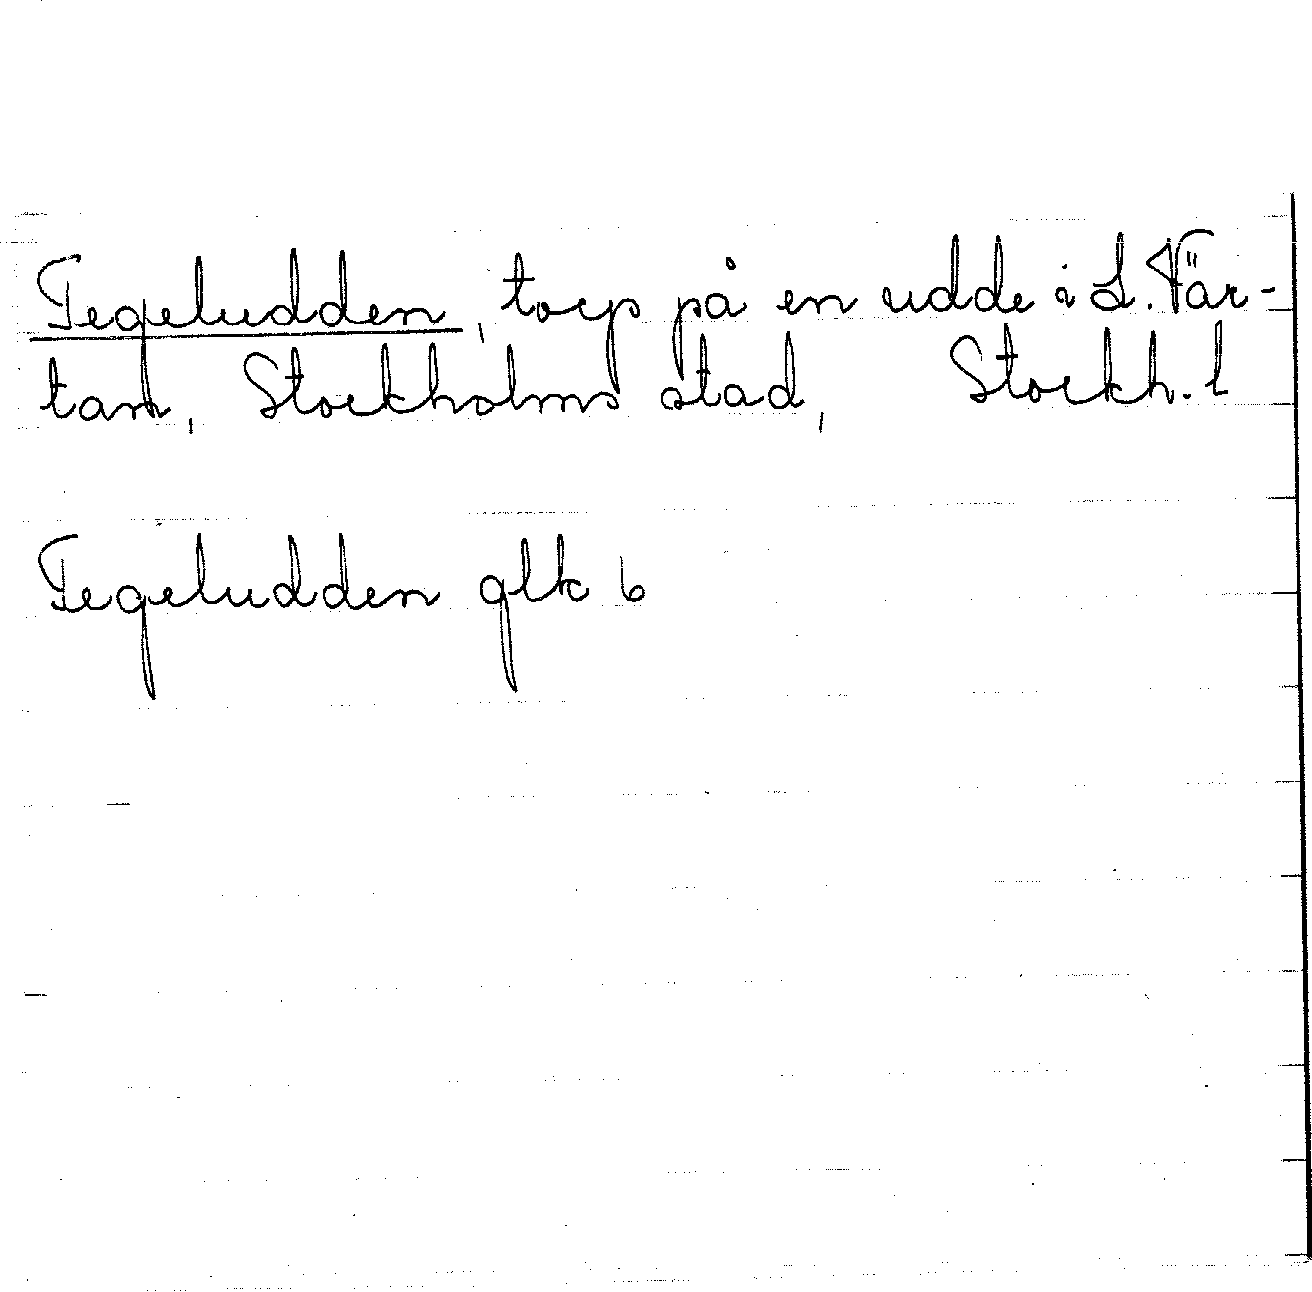 Tegeludden, torp på en udde i L. Vär-
tan, Stockholms stad, Stockh. l
Tegeludden glk 6